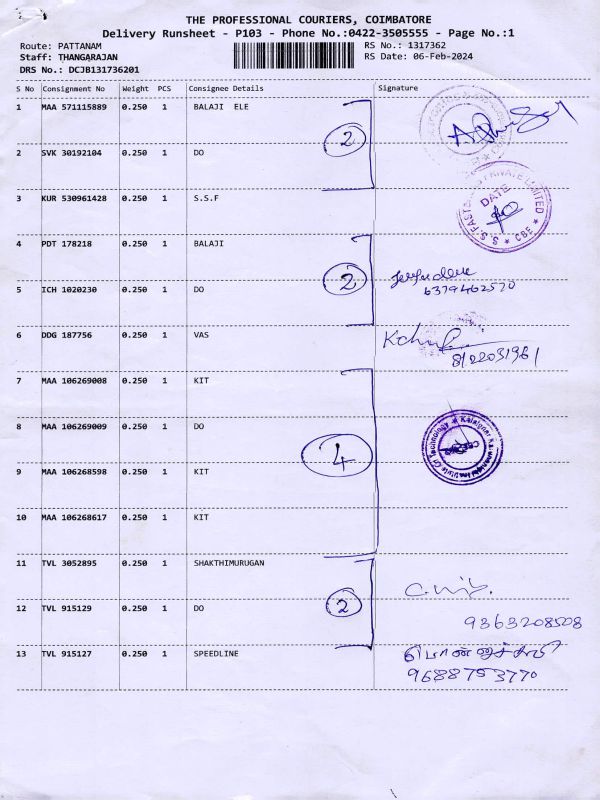 THE PROFESSIONAL COURIERS, COIMBATORE
Delivery Runsheet - P103 - Phone No.:0422-3505555 - Page No.:1
Route: PATTANAM RS No.: 1317362
Staff: THANGARAJAN RS Date: 06-Feb-2024
DRS No.: DCJB131736201
S No Consignment No Weight PCS Consignee Details Signature
1 MAA 571115889 0.250 1 BALAJI ELE
2
2 SVK 30192104 0.250 1 DO
3 KUR 530961428 0.250 1 S.S.F
S.S. FAST PRIVATE LIMITED
DATE
* CBE *
4 PDT 178218 0.250 1 BALAJI
2
5 ICH 1020230 0.250 1 DO
6379462570
6 DDG 187756 0.250 1 VAS
8122031961
7 MAA 106269008 0.250 1 KIT
8 MAA 106269009 0.250 1 DO
4
Kalaignar Karunanidhi Institute Of Technology
9 MAA 106268598 0.250 1 KIT
10 MAA 106268617 0.250 1 KIT
11 TVL 3052895 0.250 1 SHAKTHIMURUGAN
12 TVL 915129 0.250 1 DO
2
9363208508
13 TVL 915127 0.250 1 SPEEDLINE
9688753770